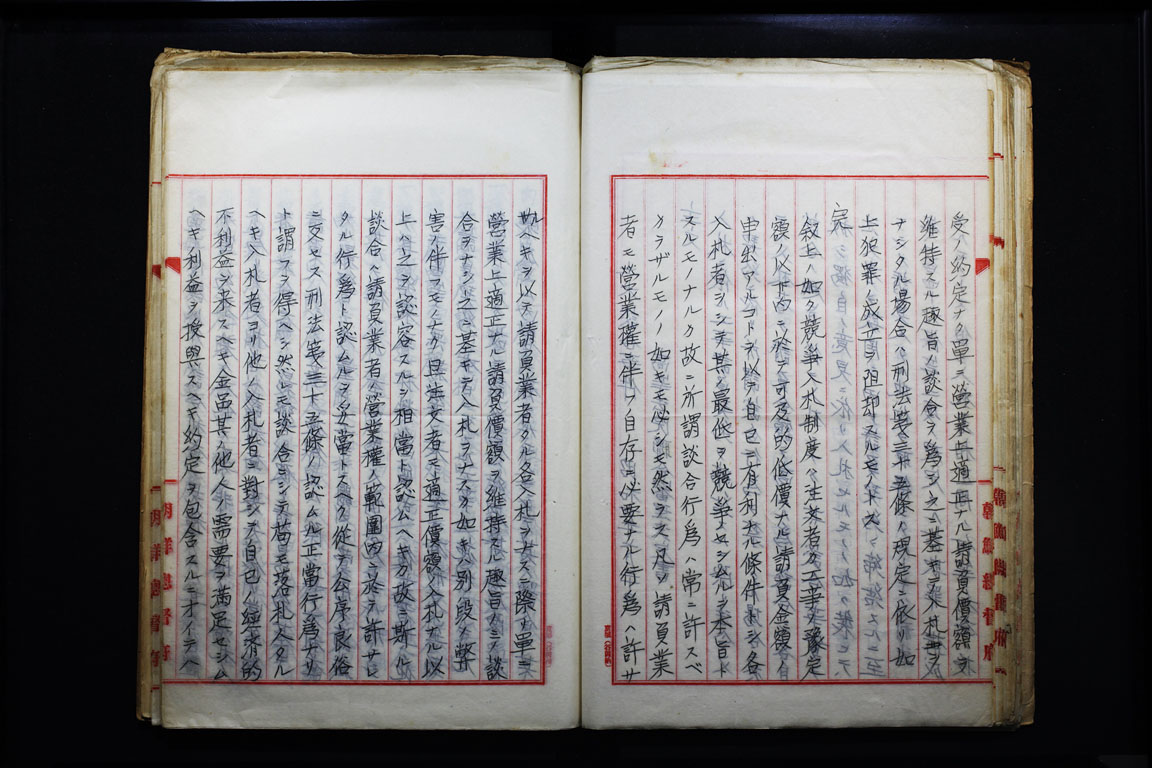 受ノ約定ナク單ニ營業上適正ナル請負價額ヲ
維持スル趣旨ノ談合ヲ爲シ之ニ基キテ入札ヲ
ナシタル場合ハ刑法第三十五條ノ規定ニ依リ如
上犯罪ノ成立ヲ阻却スルモノトス
敍上ノ如ク競爭入札制度ハ注文者カ工事ノ豫定
額ノ以内ニ於テ可及的低價ナル請負金額ノ
申出アルコトヲ以テ自己ニ有利ナル條件トシ各
入札者ヲシテ其ノ最低ヲ競爭セシムルヲ本旨ト
スルモノナルカ故ニ所謂談合行爲ハ常ニ許スベ
カラザルモノノ如キモ必シモ然ラス凡ソ請負業
者モ營業權ニ伴フ自存ニ必要ナル行爲ハ許サ
ルヘキヲ以テ請負業者カ各入札ヲナスニ際リ單ニ
營業上適正ナル請負價額ヲ維持スル趣旨ノミニテ談
合ヲナシ之ニ基キテ入札ヲナスカ如キハ別段ノ弊
害ノ伴フモノナク且注文者モ適正價額ノ入札ナル以
上ハ之ヲ認容スルヲ相當ト認ムヘキカ故ニ斯ル
談合ハ請負業者ノ營業權ノ範圍内ニ於テ許サレ
タル行爲ト認ムルヲ妥當トスヘク從テ公序良俗
ニ反セス刑法第三十五條ノ認ムル正當行爲ナリ
ト謂フヲ得ヘシ然レモ談合ニシテ苟モ落札人タル
ヘキ入札者ヨリ他ノ入札者ニ對シテ自己ノ經濟的
不利益ヲ来スヘキ金品其ノ他人ノ需要ヲ滿足セシム
ヘキ利益ヲ授與スヘキ約定ヲ包含スルニオイテハ